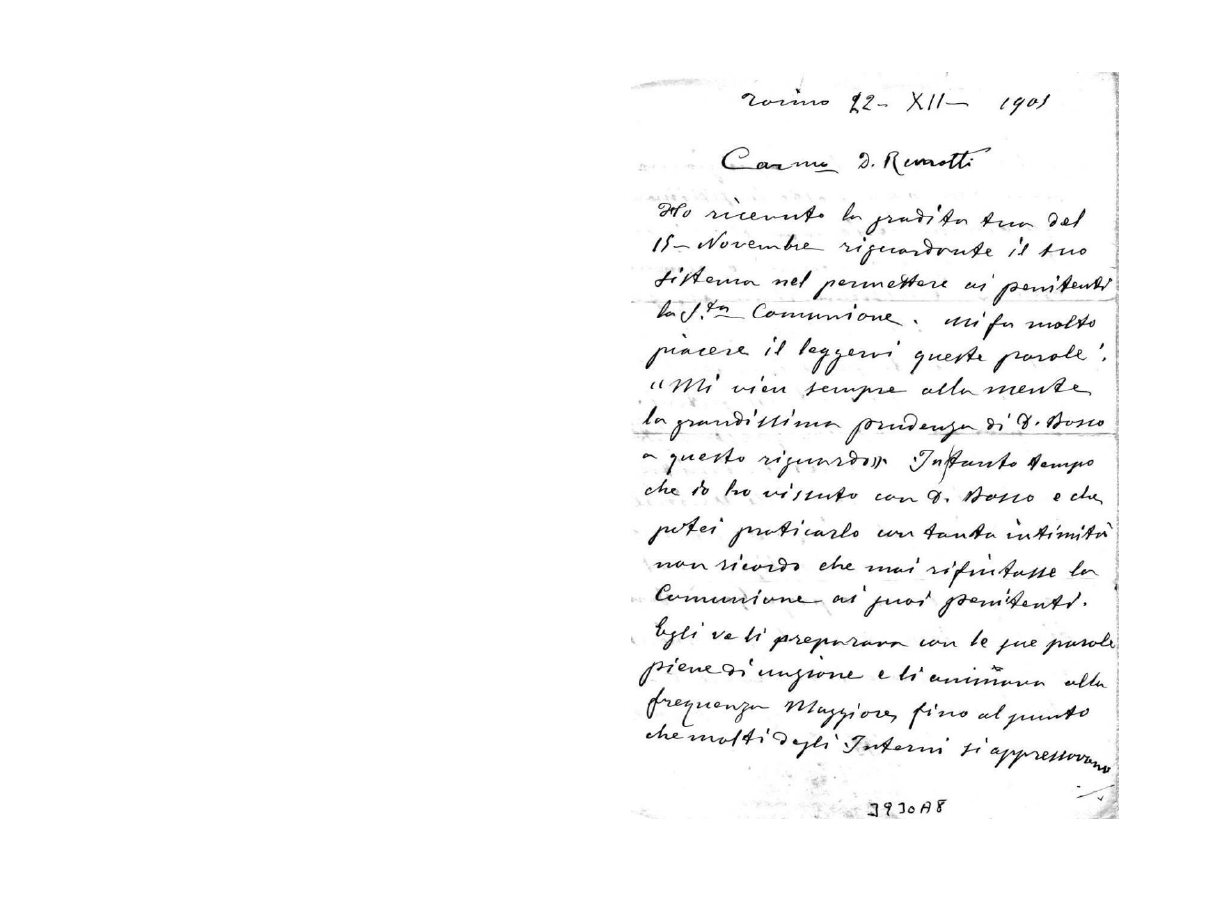 Torino 22- XII- 1901
Car.mo D. Renotti
Ho ricevuto la gradita tua del
15- Novembre riguardante il tuo
sistema nel permettere ai penitenti
la S.ta Comunione. Mi fa molto
piacere il leggervi queste parole:
"Mi vien sempre alla mente
la grandissima prudenza di D. Bosco
a questo riguardo» In tanto tempo
che io ho vissuto con D. Bosco e che
potei praticarlo con tanta intimità
non ricordo che mai rifiutasse la
Comunione ai suoi penitenti.
Egli ve li preparava con le sue parole
piene di unzione e li animava alla
frequenza Maggiore, fino al punto
che molti degli Interni si appressavano
3930A8